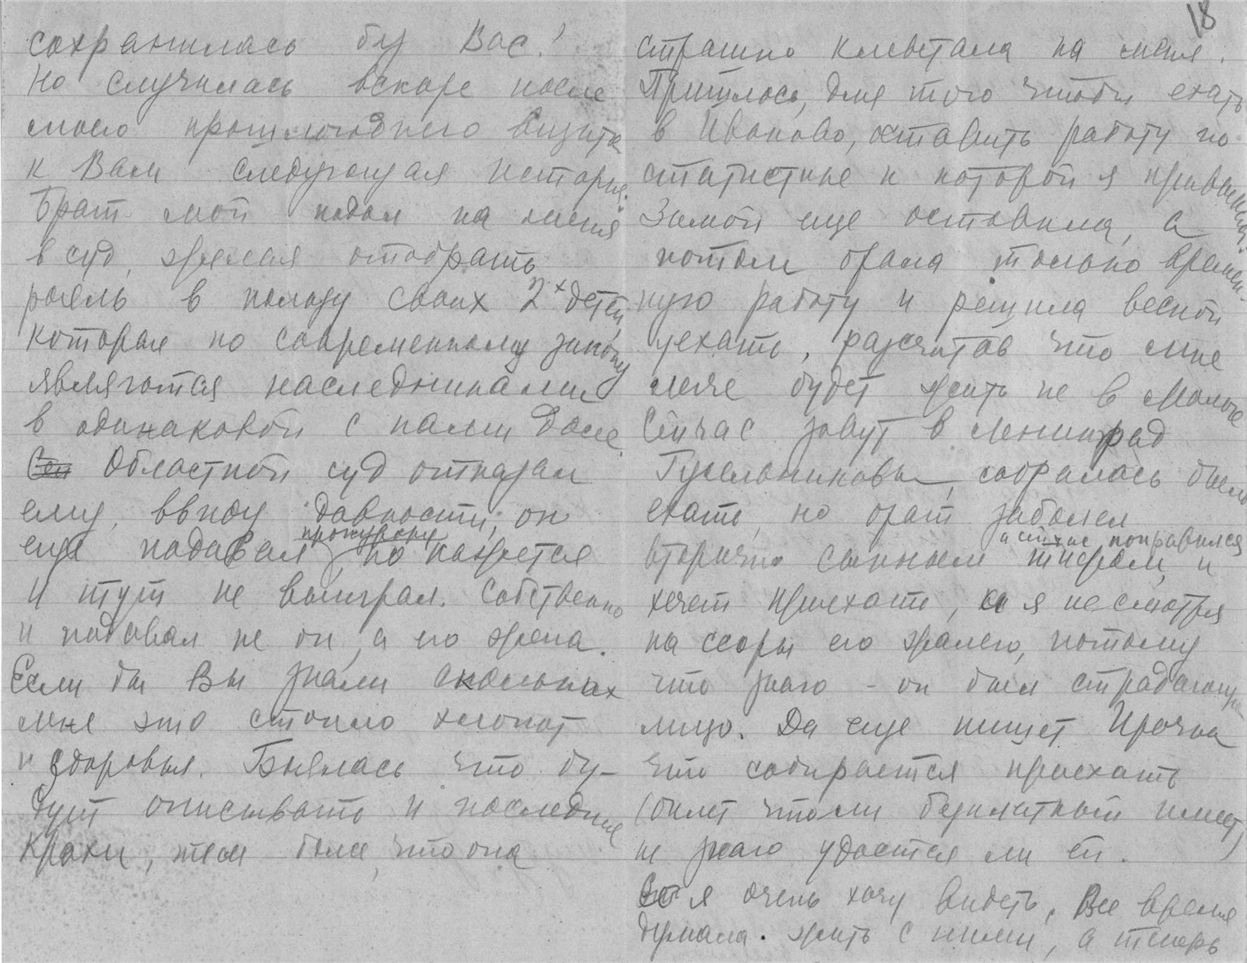 сохранилась бу Вас!
Но случилась вскоре после
моего прошлогоднего визита
к Вам следующая история.
Брат мой подал на меня
в суд, желая отобрать
рояль в пользу своих 2х детей,
которые по современному закону
являются наследниками
в одинаковой с нами доле.
Областной суд отказал
ему, ввиду давности; он
еще подавал прокурору, но кажется
и тут не выиграл. Собственно
и подавал не он, а его жена.
Если бы Вы знали скольких
мне это стоило хлопот
и здоровья. Боялась что бу-
дут описывать и последние
крохи, тем более, что она
18
страшно клеветала на меня.
Пришлось, для того чтобы ехать
в Иваново, оставить работу по
статистике к которой я привыкла.
Зимой еще оставила, а
потом брала только времен-
ную работу и решила весной
уехать, рассчитав что мне
легче будет жить не в Мологе
Сейчас зовут в Ленинград
собралась было
ехать, но брат заболел
вторично сыпным тифом, а сейчас поправился и
хочет приехать, и я не смотря
на ссоры его жалею, потому
что знаю - он был страдающее
лицо. Да еще пишет Ирочка
что собирается приехать
(билет чтоли бесплатный имеет)
не знаю удастся ли ей.
я очень хочу видеть. Все время
думала жить с ними, а теперь